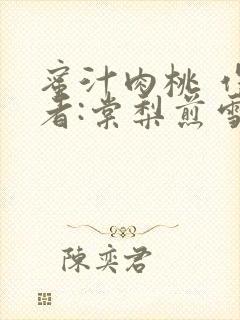 蜜汁肉桃 作
者:棠梨煎雪
陳奕君